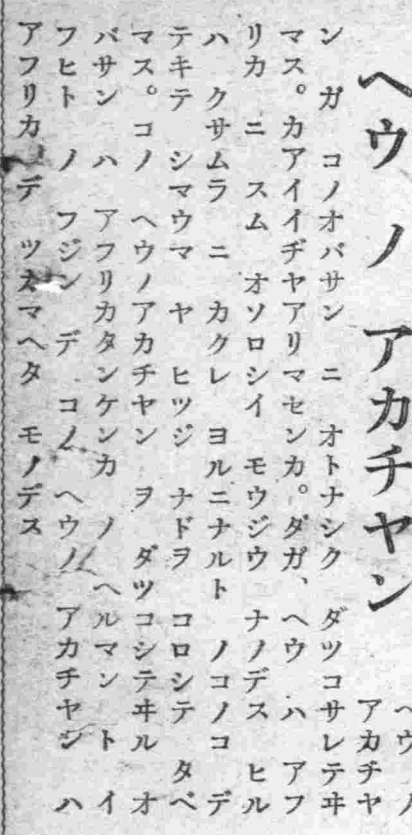 ヘウ ノ アカチヤン
ヘウ ノ
アカチヤ
ン ガ コノオバサン ニ オトナシク ダツコサレテヰ
マス。カアイイヂヤアリマセンカ。ダガ、ヘウ ハ アフ
リカ ニ スム オソロシイ モウジウ ナノデス ヒル
ハ クサムラ ニ カクレ ヨルニナルト ノコノコ デ
テキテ シマウマ ヤ ヒツジ ナドヲ コロシテ タベ
マス。コノ ヘウノアカチヤン ヲ ダツコシテヰル オ
バサン ハ アフリカタンケンカ ノ ヘルマン ト イ
フヒト ノ フジン デ コノ ヘウノ アカチヤン ハ
アフリカ デ ツカマヘタ モノデス